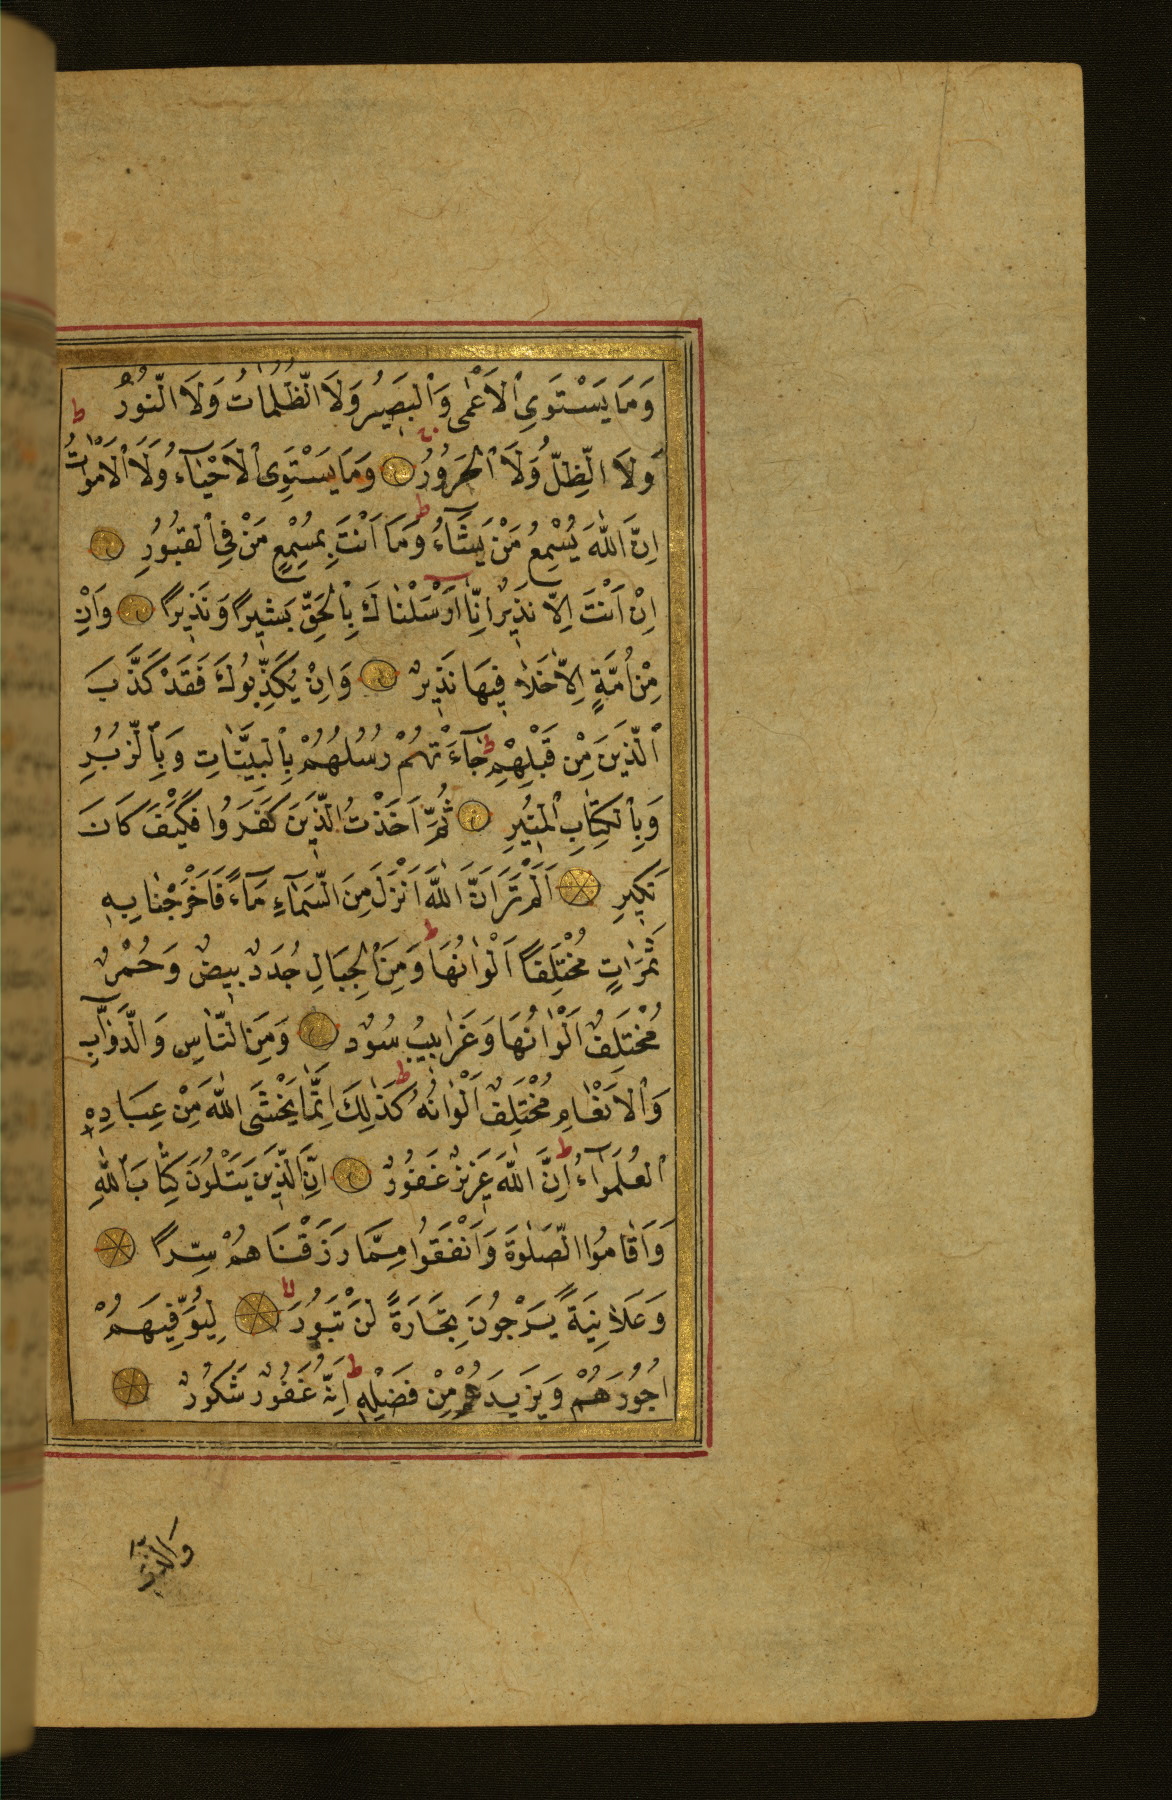 وَمَا يَسْتَوِي ٱلْاَعْمٰى وَٱلْبَصِيرُ وَلَا الظُّلُمَاتُ وَلَا النُّورُ ط
وَلَا الظِّلُّ وَلَا ٱلْحَرُورُ وَمَا يَسْتَوِى ٱلْاَحْيَآءُ وَلَا ٱلْاَمْوَاتُ
اِنَّ اللّٰهَ يُسْمِعُ مَنْ يَشَآءُ ط وَمَا اَنْتَ بِمُسْمِعٍ مَنْ فِي ٱلْقُبُورِ
اِنْ اَنْتَ اِلَّا نَذِيرٌ اِنَّا اَرْسَلْنَاكَ بِٱلْحَقِّ بَشِيرًا وَنَذِيرًا وَاِنْ
مِنْ اُمَّةٍ اِلَّا خَلَا فِيهَا نَذِيرٌ وَاِنْ يُكَذِّبُوكَ فَقَدْ كَذَّبَ
ٱلَّذِينَ مِنْ قَبْلِهِمْ ط جَآءَتْهُمْ رُسُلُهُمْ بِٱلْبَيِّنَاتِ وَبِٱلزُّبُرِ
وَبِٱلْكِتَابِ ٱلْمُنِيرِ ثُمَّ اَخَذْتُ الَّذِينَ كَفَرُوا فَكَيْفَ كَانَ
نَكِيرِ اَلَمْ تَرَ اَنَّ اللّٰهَ اَنْزَلَ مِنَ السَّمَآءِ مَآءً فَاَخْرَجْنَا بِهِ
ثَمَرَاتٍ مُخْتَلِفًا اَلْوَانُهَا ط وَمِنَ ٱلْجِبَالِ جُدَدٌ بِيضٌ وَحُمْرٌ
مُخْتَلِفٌ اَلْوَانُهَا وَغَرَابِيبُ سُودٌ وَمِنَ النَّاسِ وَالدَّوَآبِّ
وَٱلْاَنْعَامِ مُخْتَلِفٌ اَلْوَانُهُ كَذٰلِكَ ط اِنَّمَا يَخْشَى اللّٰهَ مِنْ عِبَادِهِ
ٱلْعُلَمٰٓؤُا ط اِنَّ اللّٰهَ عَزِيزٌ غَفُورٌ اِنَّ الَّذِينَ يَتْلُونَ كِتَابَ ٱللّٰهِ
وَاَقَامُوا الصَّلٰوةَ وَاَنْفَقُوا مِمَّا رَزَقْنَاهُمْ سِرًّا
وَعَلَانِيَةً يَرْجُونَ تِجَارَةً لَنْ تَبُورَ لا لِيُوَفِّيَهُمْ
اُجُورَهُمْ وَيَزِيدَهُمْ مِنْ فَضْلِهِ ط اِنَّهُ غَفُورٌ شَكُورٌ
والذى